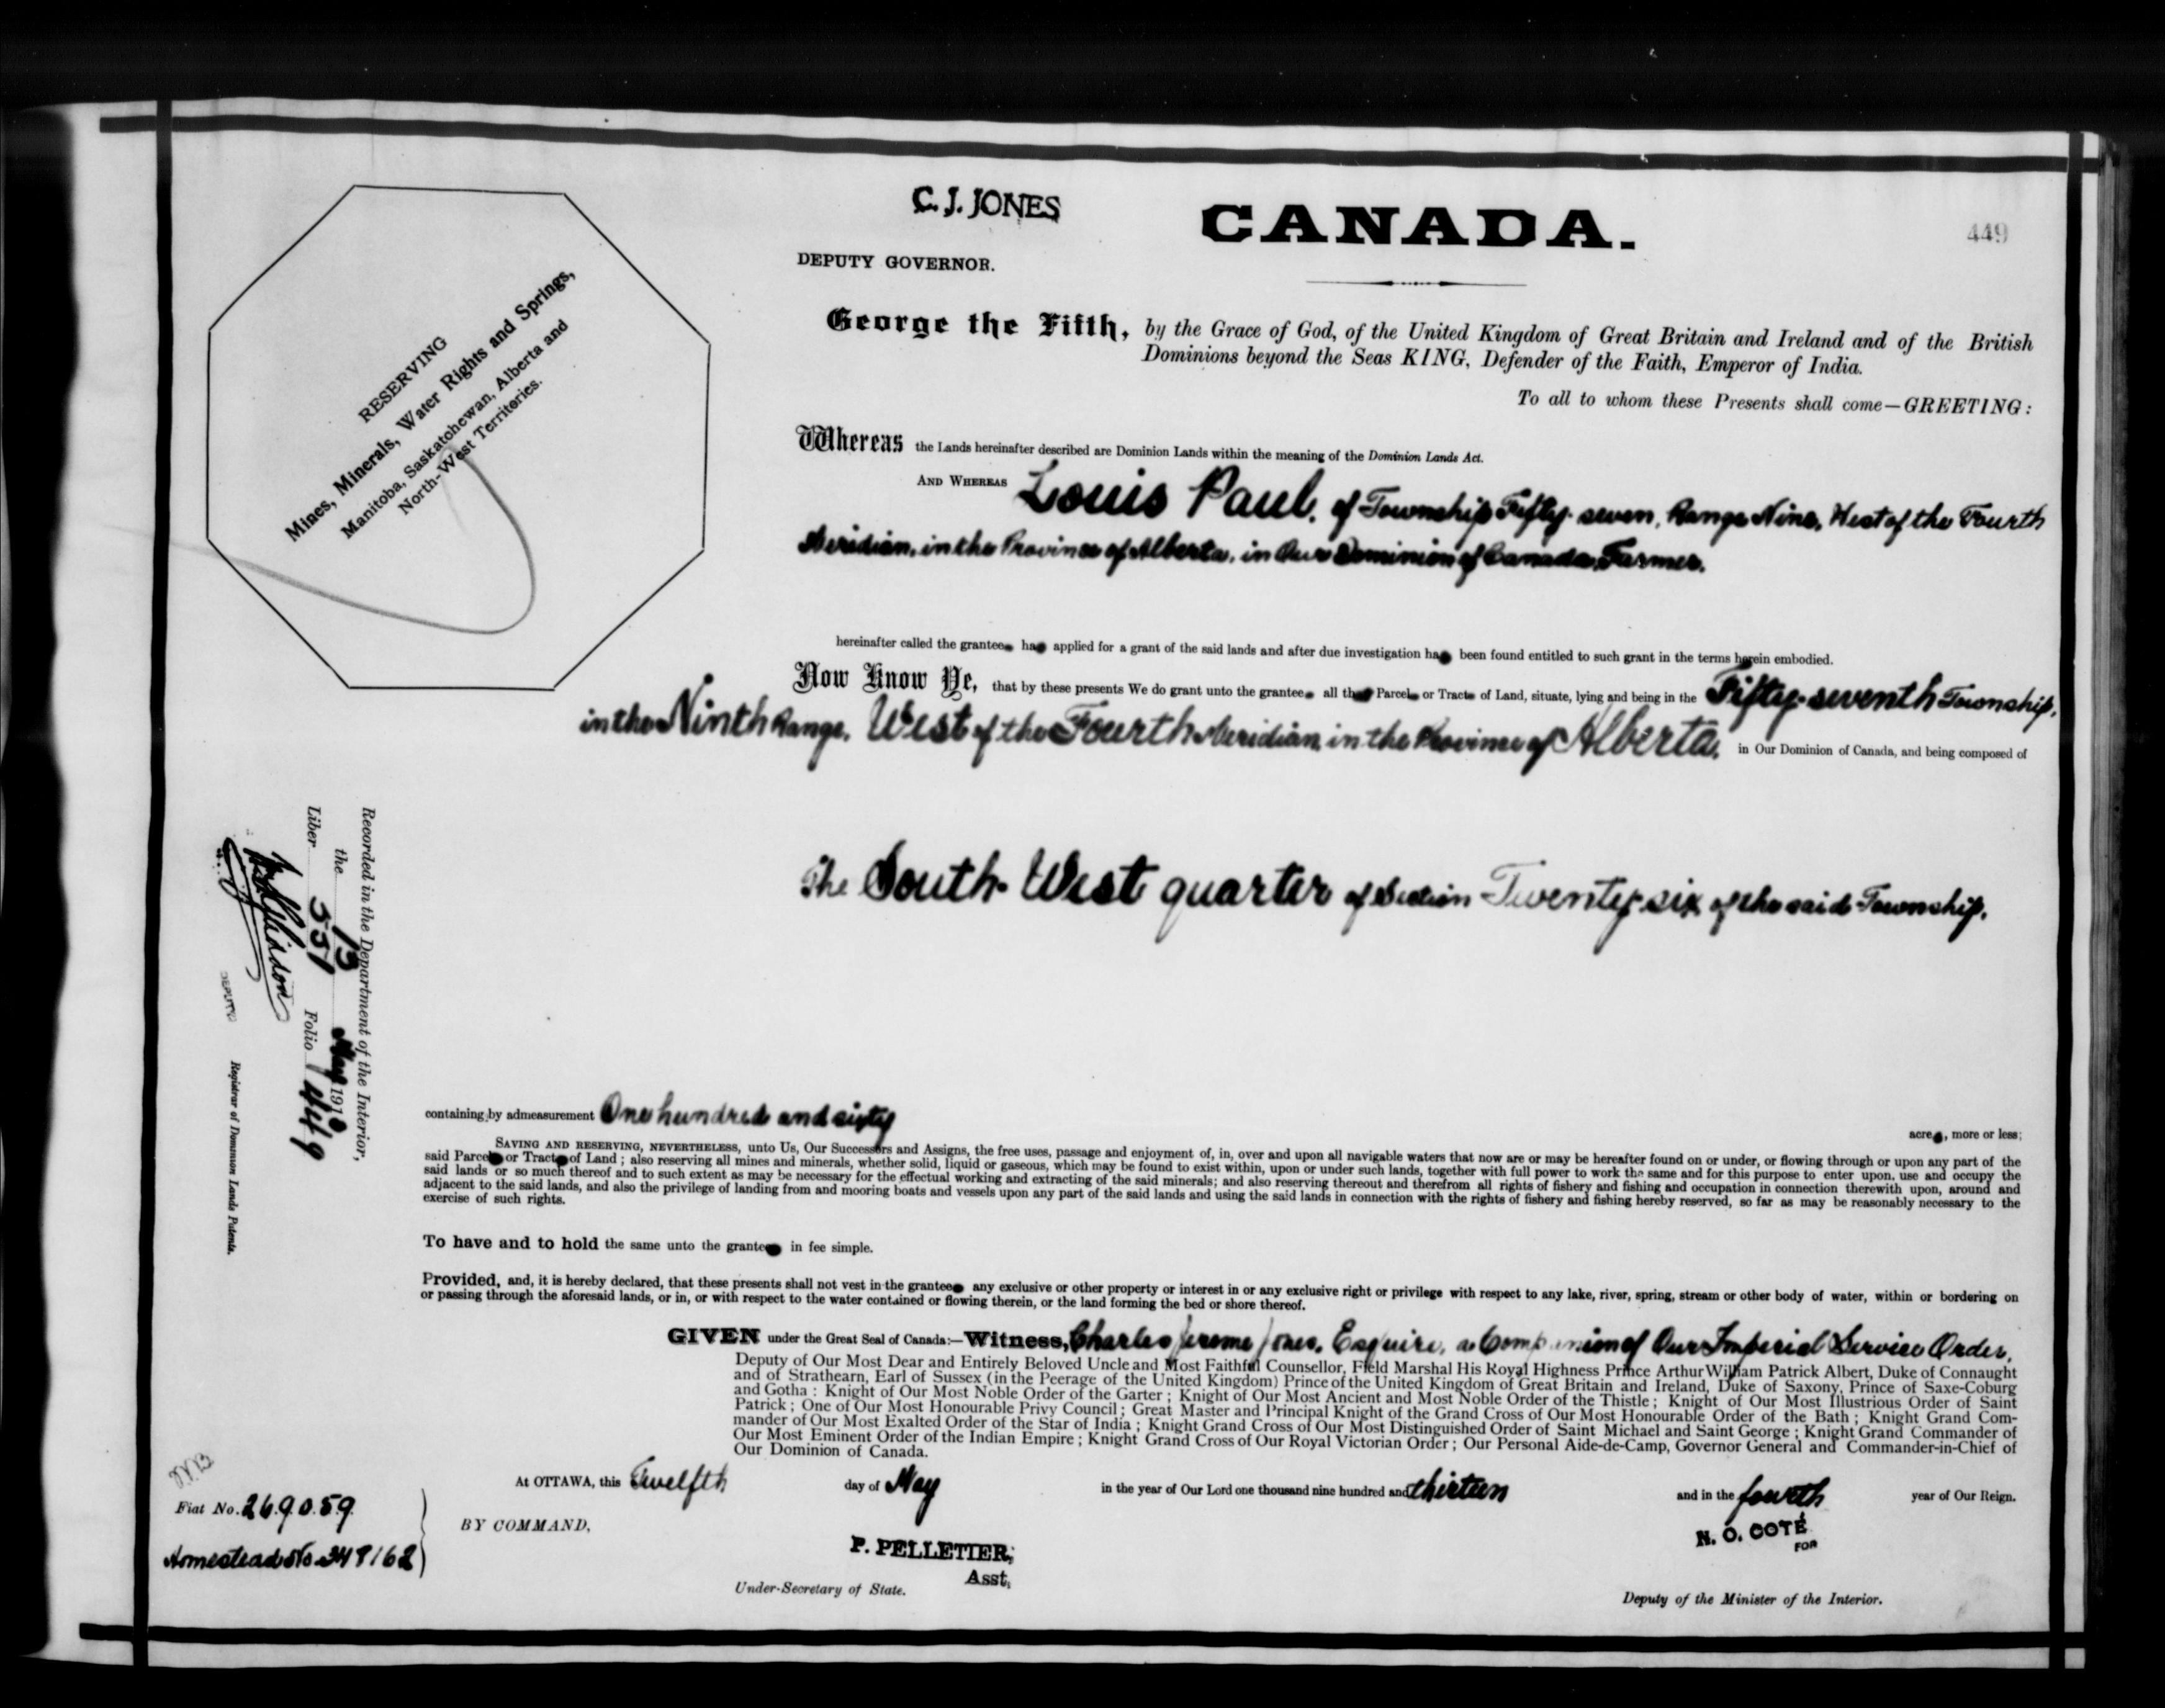 C. J. JONES
CANADA.
449
DEPUTY GOVERNOR.
George the Fifth, by the Grace of God, of the United Kingdom of Great Britain and Ireland and of the British
Dominions beyond the Seas KING, Defender of the Faith, Emperor of India.
To all to whom these Presents shall come—GREETING:
RESERVING
Mines, Minerals, Water Rights and Springs,
Manitoba, Saskatchewan, Alberta and
North-West Territories.
Whereas the Lands hereinafter described are Dominion Lands within the meaning of the Dominion Lands Act.
AND WHEREAS Louis Paul, of Township Fifty-seven, Range Nine, West of the Fourth
Meridian, in the Province of Alberta, in Our Dominion of Canada, Farmer.
hereinafter called the grantee has applied for a grant of the said lands and after due investigation has been found entitled to such grant in the terms herein embodied.
Now Know Ye, that by these presents We do grant unto the grantee all that Parcel or Tract of Land, situate, lying and being in the Fifty-seventh Township,
in the Ninth Range, West of the Fourth Meridian in the Province of Alberta, in Our Dominion of Canada, and being composed of
The South West quarter of Section Twenty-six of the said Township,
Recorded in the Department of the Interior,
the 13 May 1913
Liber 551 Folio 449
DEPUTY
Registrar of Dominion Lands Patents.
containing by admeasurement One hundred and sixty acres, more or less;
SAVING AND RESERVING, NEVERTHELESS, unto Us, Our Successors and Assigns, the free uses, passage and enjoyment of, in, over and upon all navigable waters that now are or may be hereafter found on or under, or flowing through or upon any part of the
said Parcel or Tract of Land; also reserving all mines and minerals, whether solid, liquid or gaseous, which may be found to exist within, upon or under such lands, together with full power to work the same and for this purpose to enter upon, use and occupy the
said lands or so much thereof and to such extent as may be necessary for the effectual working and extracting of the said minerals; and also reserving thereout and therefrom all rights of fishery and fishing and occupation in connection therewith upon, around and
adjacent to the said lands, and also the privilege of landing from and mooring boats and vessels upon any part of the said lands and using the said lands in connection with the rights of fishery and fishing hereby reserved, so far as may be reasonably necessary to the
exercise of such rights.
To have and to hold the same unto the grantee in fee simple.
Provided, and, it is hereby declared, that these presents shall not vest in the grantee any exclusive or other property or interest in or any exclusive right or privilege with respect to any lake, river, spring, stream or other body of water, within or bordering on
or passing through the aforesaid lands, or in, or with respect to the water contained or flowing therein, or the land forming the bed or shore thereof.
GIVEN under the Great Seal of Canada:—Witness, Charles Jerome Jones, Esquire, a Companion of Our Imperial Service Order,
Deputy of Our Most Dear and Entirely Beloved Uncle and Most Faithful Counsellor, Field Marshal His Royal Highness Prince Arthur William Patrick Albert, Duke of Connaught
and of Strathearn, Earl of Sussex (in the Peerage of the United Kingdom) Prince of the United Kingdom of Great Britain and Ireland, Duke of Saxony, Prince of Saxe-Coburg
and Gotha: Knight of Our Most Noble Order of the Garter; Knight of Our Most Ancient and Most Noble Order of the Thistle; Knight of Our Most Illustrious Order of Saint
Patrick; One of Our Most Honourable Privy Council; Great Master and Principal Knight of the Grand Cross of Our Most Honourable Order of the Bath; Knight Grand Com-
mander of Our Most Exalted Order of the Star of India; Knight Grand Cross of Our Most Distinguished Order of Saint Michael and Saint George; Knight Grand Commander of
Our Most Eminent Order of the Indian Empire; Knight Grand Cross of Our Royal Victorian Order; Our Personal Aide-de-Camp, Governor General and Commander-in-Chief of
Our Dominion of Canada.
At OTTAWA, this Twelfth day of May in the year of Our Lord one thousand nine hundred and thirteen and in the fourth year of Our Reign.
Fiat No. 269059
BY COMMAND,
Homestead No 348162
P. PELLETIER,
Asst,
Under-Secretary of State.
N. O. COTÉ
FOR
Deputy of the Minister of the Interior.